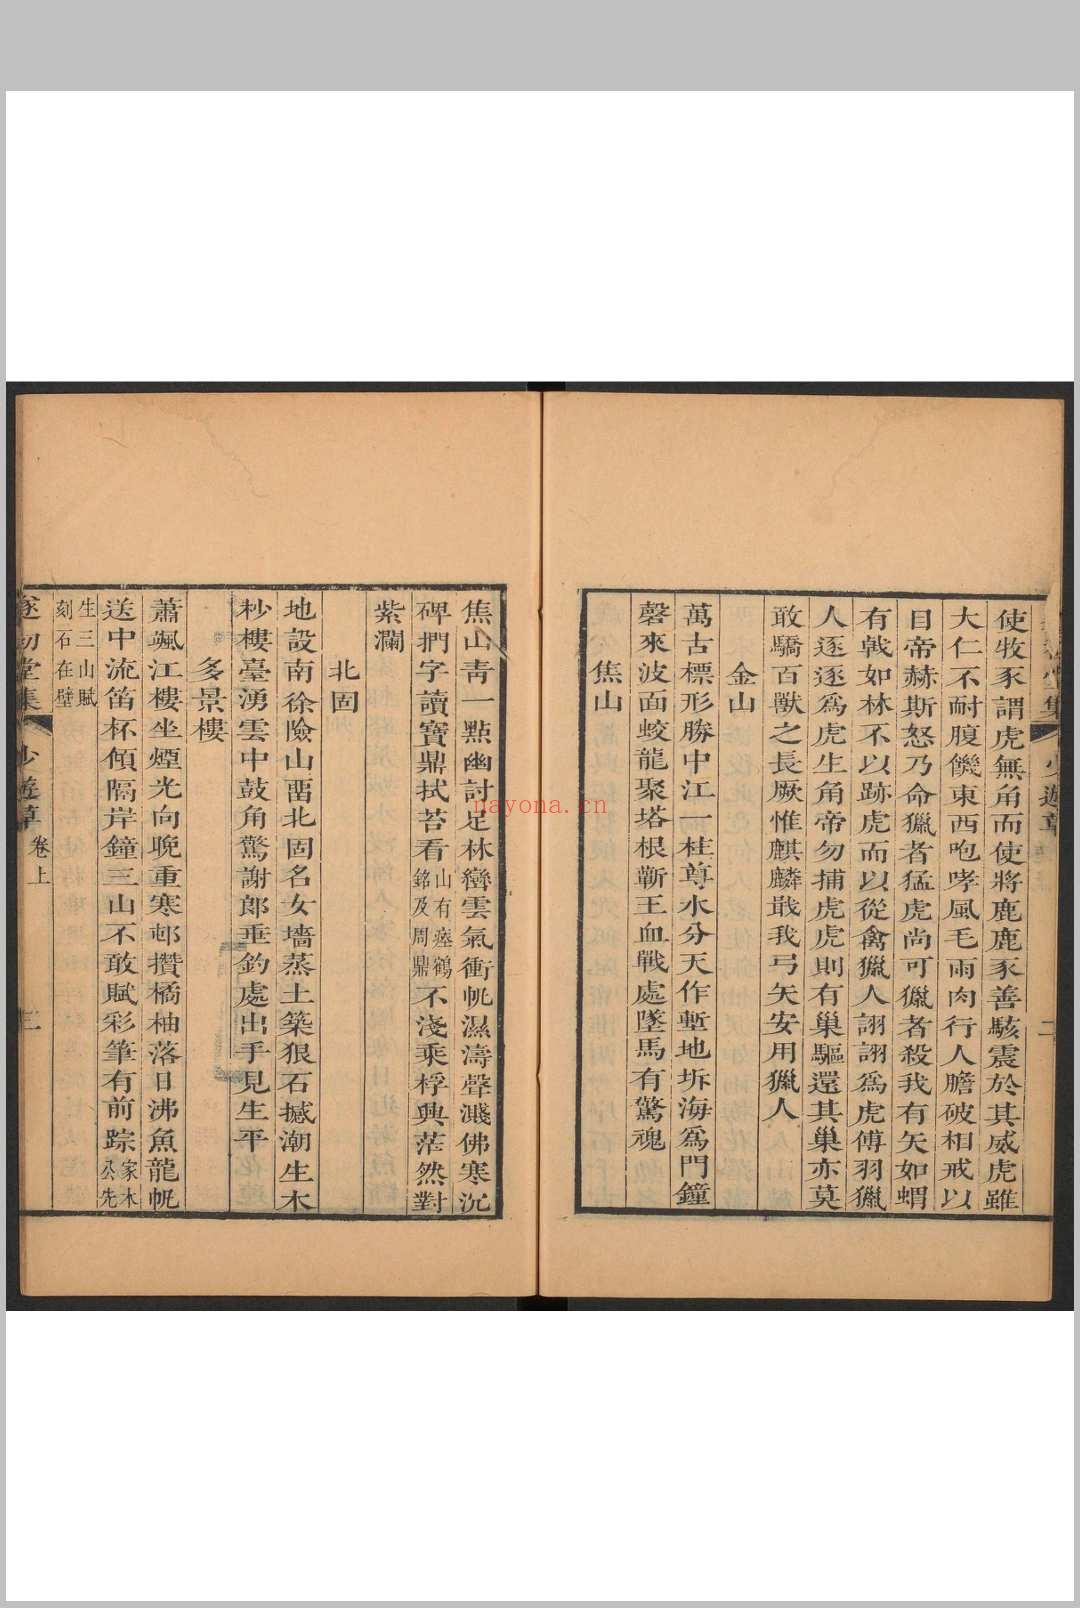 使牧豕謂虎無角而使將鹿鹿豕善駭震於其威虎雖
大仁不耐腹饑東西咆哮風毛雨肉行人膽破相戒以
目帝赫斯怒乃命獵者猛虎尚可獵者殺我有矢如蝟
有戟如林不以跡虎而以從禽獵人詡詡爲虎傅羽獵
人逐逐爲虎生角帝勿捕虎虎則有巢驅還其巢亦莫
敢驕百獸之長厥惟麒麟戢我弓矢安用獵人
金山
萬古標形勝中江一柱尊水分天作塹地坼海爲門鐘
磬來波面蛟龍聚塔根蘄王血戰處墜馬有驚魂
焦山
焦山靑一點幽討足林巒雲氣衝帆濕濤聲濺佛寒沉
碑捫字讀寶鼎拭苔看山有瘞鶴銘及周鼎不淺乘桴興茫然對
紫瀾
北固
地設南徐險山畱北固名女墻蒸土築狠石撼潮生木
杪樓臺湧雲中鼓角驚謝郎垂釣處出手見生平
多景樓
蕭颯江樓坐煙光向晚重寒邨攢橘柚落日沸魚龍帆
送中流笛杯傾隔岸鐘三山不敢賦彩筆有前踪家木公先
生三山賦刻石在壁
遂初堂集 少遊草 卷上 三
nayona.cn